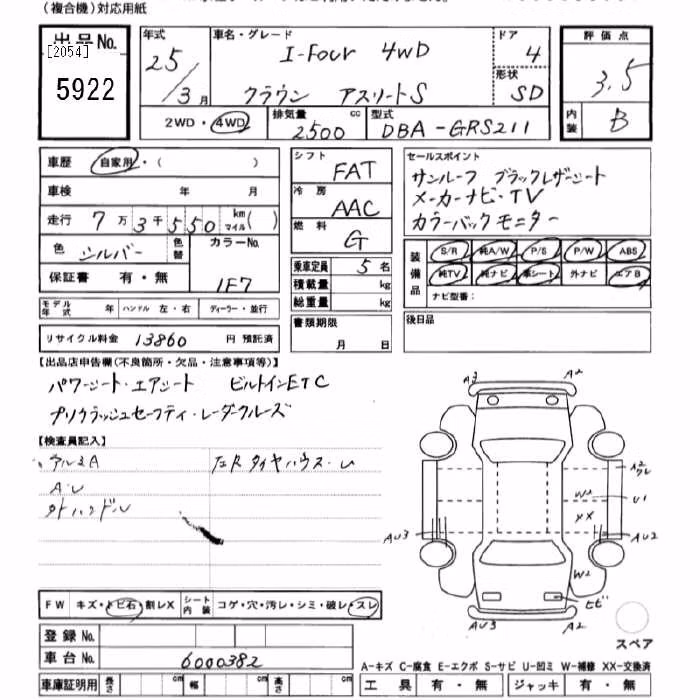 (複合機)対応用紙
出品No.
[2054]
5922
年式
25/3月
車名・グレード
I-Four 4WD
クラウン アスリートS
ドア
4
形状
SD
評価点
3.5
内装
B
2WD・4WD
排気量
2500 cc
型式
DBA-GRS211
車歴 自家用・( )
車検 年 月
走行 7万3千550 km マイル( )
色 シルバー 色替
カラーNo.
1F7
保証書 有・無
モデル年式 年 ハンドル 左・右 ディーラー・並行
リサイクル料金 13860 円 預託済
シフト FAT
冷房 AAC
燃料 G
乗車定員 5名
積載量 kg
総重量 kg
書類期限
月 日
セールスポイント
サンルーフ ブラックレザーシート
メーカーナビ・TV
カラーバックモニター
装備品
S/R 純A/W P/S P/W ABS
純TV 純ナビ 革シート 外ナビ エアB
ナビ型番:
後日品
【出品店申告欄(不良箇所・欠品・注意事項等)】
パワーシート・エアシート ビルトインETC
プリクラッシュセーフティ・レーダクルーズ
【検査員記入】
アルミA
A・U
外ハンドルU
左Rタイヤハウス・U
A3
A2
A2
W2
U1
XX
AU3
AU2
W2
ヒビ
AU3
A2
スペア
FW キズ・トビ石・割レX シート内装 コゲ・穴・汚レ・シミ・破レ・スレ
登録No.
車台No. 6000382
車庫証明用 長さ cm 幅 cm 高さ cm
A-キズ C-腐食 E-エクボ S-サビ U-凹ミ W-補修 XX-交換済
工具 有・無 ジャッキ 有・無